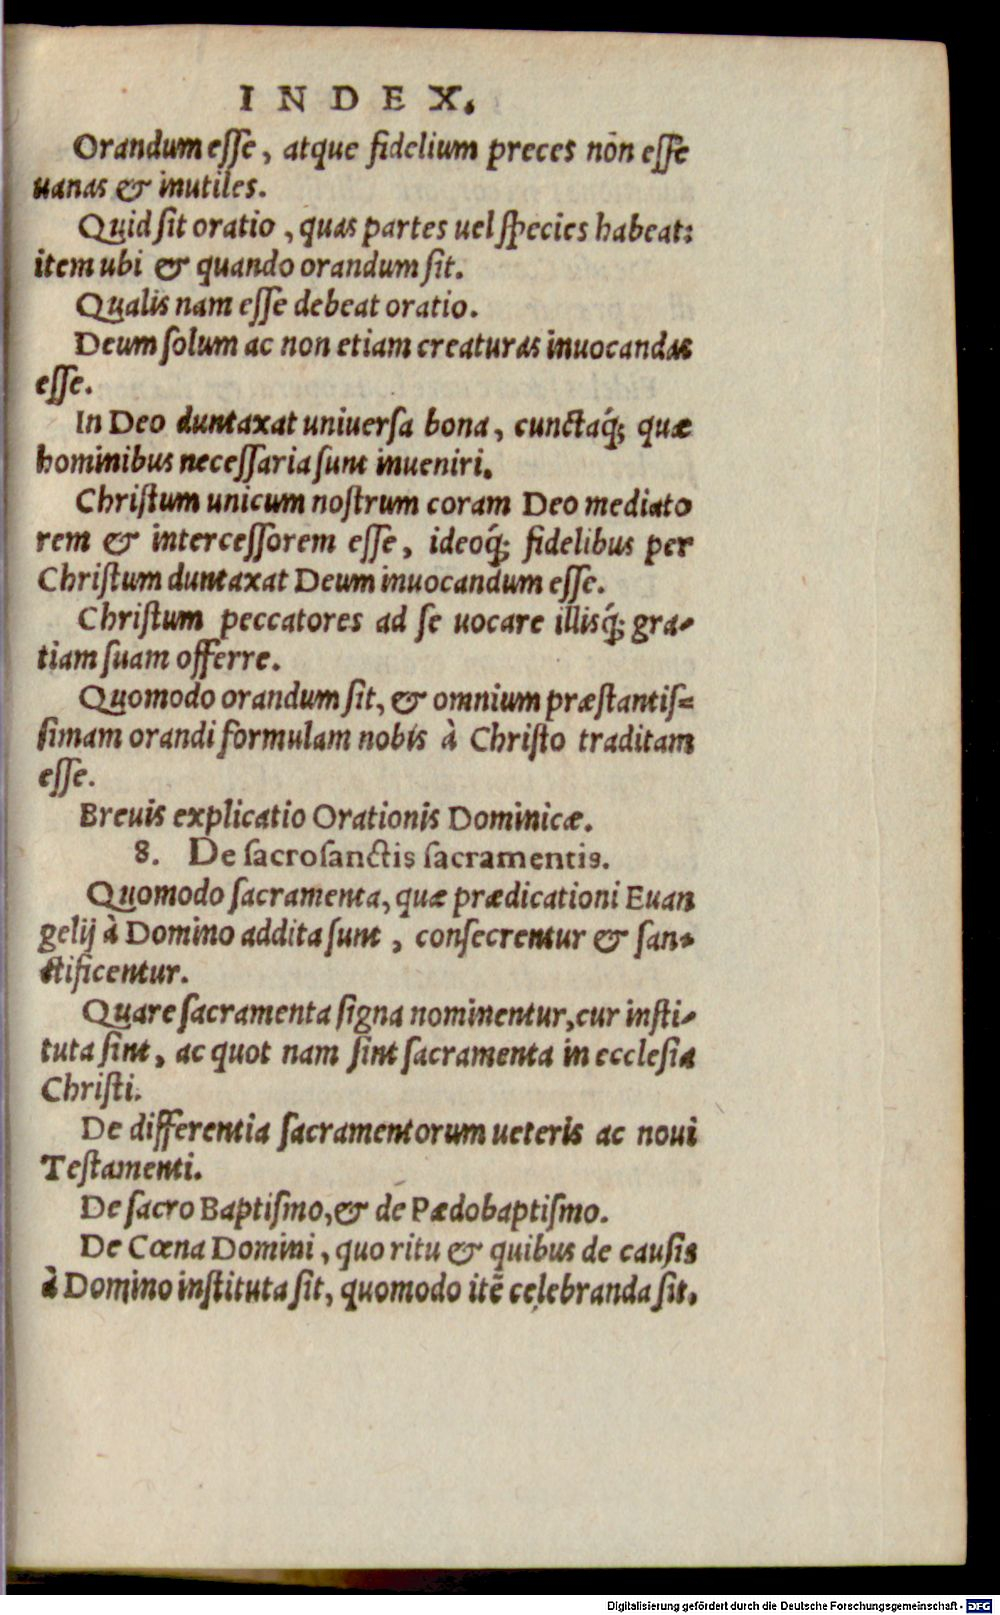 INDEX.
Orandum eſſe, atque fidelium preces non eſſe
uanas & inutiles.
Quid ſit oratio, quas partes uel ſpecies habeat:
item ubi & quando orandum ſit.
Qualis nam eſſe debeat oratio.
Deum ſolum ac non etiam creaturas inuocandas
eſſe.
In Deo duntaxat uniuerſa bona, cunctaq́; quæ
hominibus neceſſaria ſunt inueniri.
Chriſtum unicum noſtrum coram Deo mediato
rem & interceſſorem eſſe, ideoq́; fidelibus per
Chriſtum duntaxat Deum inuocandum eſſe.
Chriſtum peccatores ad ſe uocare illisq́; gra-
tiam ſuam offerre.
Quomodo orandum ſit, & omnium præſtantiſ=
ſimam orandi formulam nobis à Chriſto traditam
eſſe.
Breuis explicatio Orationis Dominicæ.
8. De ſacroſanctis ſacramentis.
Quomodo ſacramenta, quæ prædicationi Euan
gelij à Domino addita ſunt, conſecrentur & ſan-
ctificentur.
Quare ſacramenta ſigna nominentur, cur inſti-
tuta ſint, ac quot nam ſint ſacramenta in eccleſia
Chriſti.
De differentia ſacramentorum ueteris ac noui
Teſtamenti.
De ſacro Baptiſmo, & de Pædobaptiſmo.
De Cœna Domini, quo ritu & quibus de cauſis
à Domino inſtituta ſit, quomodo itē celebranda ſit.
Digitalisierung gefördert durch die Deutsche Forschungsgemeinschaft - DFG